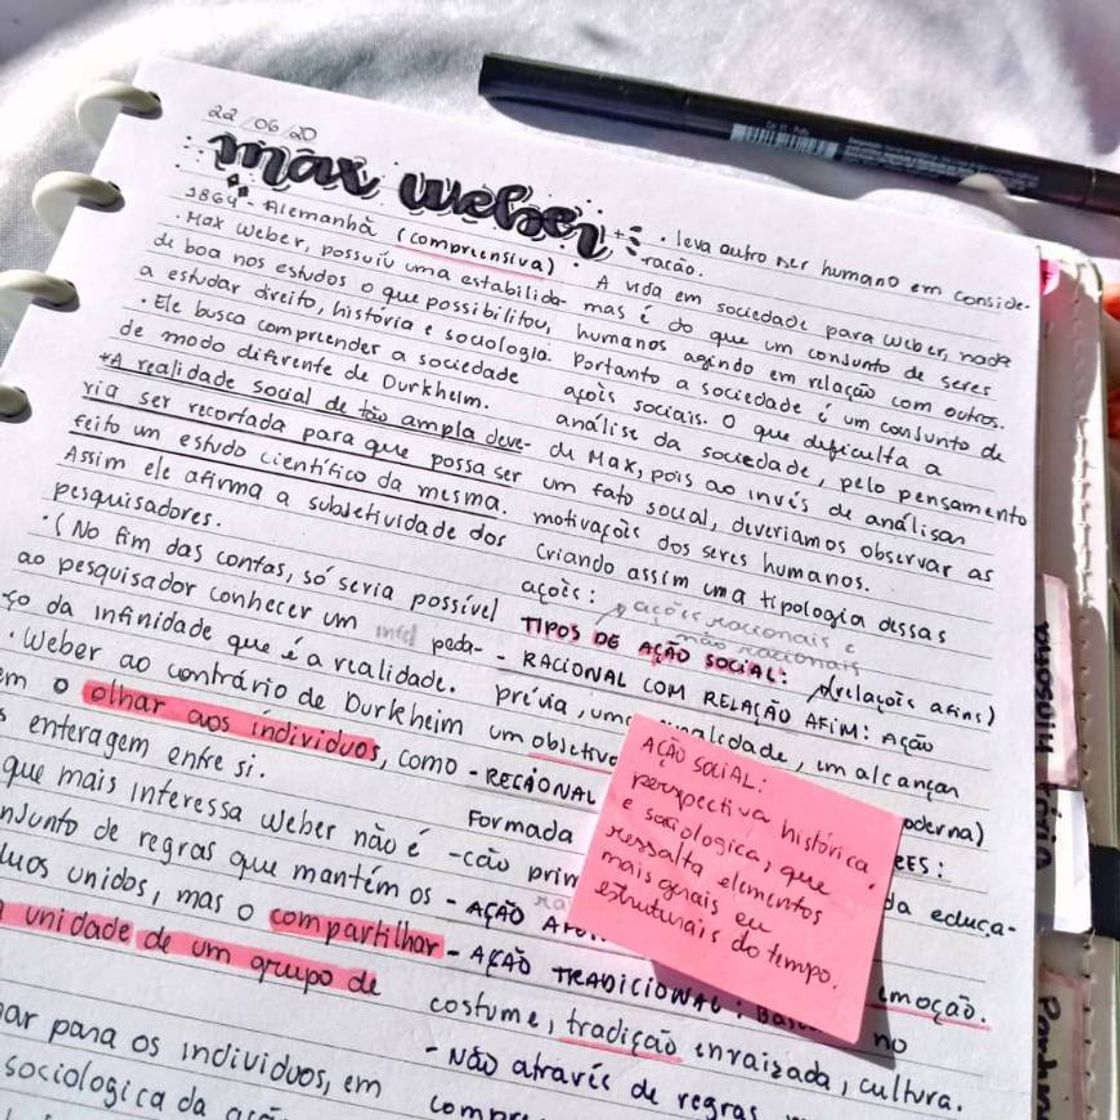 22/06/20
max weber
1864 - Alemanhã (compreensiva)
· Max Weber, possuiu uma estabilida-
de boa nos estudos o que possibilitou,
a estudar direito, história e sociologia.
· Ele busca compreender a sociedade
de modo diferente de Durkheim.
*A realidade social de tão ampla deve-
ria ser recortada para que possa ser
feito un estudo científico da mesma.
Assim ele afirma a subjetividade dos
pesquisadores.
· (No fim das contas, só seria possível
ao pesquisador conhecer um peda-
ço da infinidade que é a realidade.
· Weber ao contrário de Durkheim
em o olhar aos indivíduos, como
s enteragem entre si.
que mais interessa Weber não é
njunto de regras que mantém os
duos unidos, mas o compartilhar
unidade de um grupo de
har para os individuos, em
sociologica da
· leva outro ser humano em conside-
ração.
· A vida em sociedade para Weber, nada
mas é do que um conjunto de seres
humanos agindo em relação com outros.
Portanto a sociedade é um consunto de
açois sociais. O que dificulta a
análise da sociedade, pelo pensamento
de Max, pois ao invés de análisar
um fato social, deveriamos observar as
motivaçois dos seres humanos.
Criando assim uma tipologia dessas
açois:
ações racionais e
não racionais
TIPOS DE AÇÃO SOCIAL:
- RACIONAL COM RELAÇÃO AFIM: Ação
(relações afins)
prévia, uma nalidade, em alcançar
um objetivo
- RECÃONAL
oderna)
Formada
EES:
-cão prim
da educa-
- AÇÃO
emoção.
- AÇÃO TRADICIONAL: no
costume, tradição enraizada, cultura.
- Não através de regras
compre
AÇÃO SOCIAL:
perspectiva histórica
e sociologica, que
ressalta elementos
mais gerais eu
estruturais do tempo.